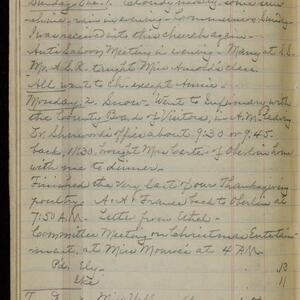 Sunday Dec. 1. Cloudy mostly, some sun-
shine, rain in evening. Communion Sunday
I was received into this church again.
Anti Saloon Meeting in evening. Mary at S.S.
Mr. A. S. R. taught Miss Arnold's class.
All went to Ch. except Annie.
Monday, 2. Snow. Went to Infirmary with
the County Board of Visitors, in A.M.
Dr. Sherwood's office about 9:30 or 9:45.
back, 11:30, brought Miss Carter of Oberlin home
with me to Dinner.
Finished the very last of our Thanksgiving
poultry. A. & Frances back to Oberlin at
7:50 A.M. Letter from Ethel.
Committee Meeting on Christmas Entertain-
ment, at Miss Monroe's at 4 P.M.
Pd. Ely
Ice 11